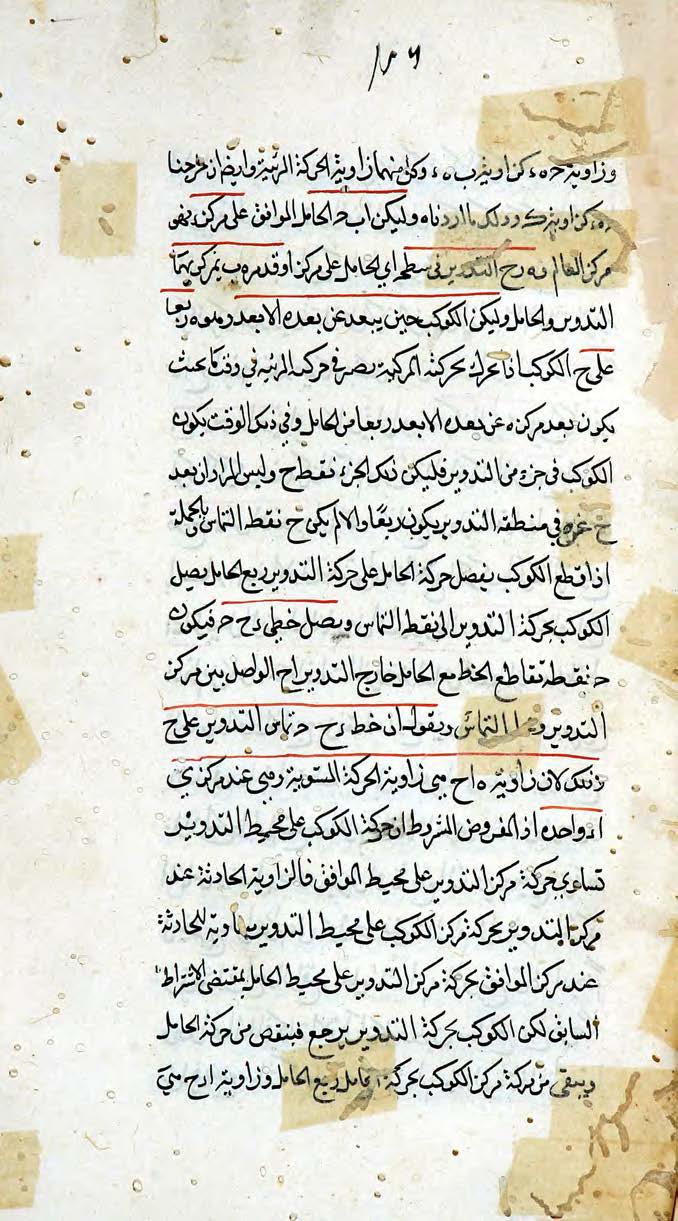 وزاوية ح ه ء كزاوية ب ه ء وكل منهما زاوية الحركة المرئية وايضا ان خرجنا
كزاوية وذلك ما اردناه وليكن اب ح الحامل الموافق على مركز ه وهو
مركز العالم و ه ر ح التدوير في سطحه اي الحامل على مركز ا وقد مر ه ب بمركزيهما
التدوير والحامل وليكن الكوكب حين يبعد عن بعده الابعد ربعا
على ح الكوكب اذا تحرك بحركته المركبة يصير في حركته المرئية في وقت بحيث
يكون بعد مركزه عن بعده الابعد ربعا من الحامل وفي ذلك الوقت يكون
الكوكب في جزء من التدوير فليكن ذلك الجزء نقطة ح وليس المراد ان بعد
ح عن ه في منطقة التدوير يكون ربعا والا لم يكن ح نقطة التماس بالجملة
اذا قطع الكوكب بفضل حركة الحامل على حركة التدوير ربع الحامل يصل
الكوكب بحركة التدوير الى نقطة التماس ويصل خطي ه ح ح فيكون
ح نقطة تقاطع الخط مع الحامل خارج التدوير ا ح الواصل بين مركز
التدوير و التماس ويقول ان خط ه ح ح تماس التدوير على ح
وذلك لان زاوية ه ا ح هي زاوية الحركة المستوية وهي عند مركزي
ا ه واحدة اذ المفروض المشروط ان حركة الكوكب على محيط التدوير
تساوي حركة مركز التدوير على محيط الموافق فالزاوية الحادثة عند
مركز التدوير بحركة مركز الكوكب على محيط التدوير مساوية للحادثة
عند مركز الموافق بحركة مركز التدوير على محيط الحامل بمقتضى الاشتراط
السابق لكن الكوكب بحركة التدوير يرجع فينقص من حركة الحامل
ويبقى من حركة مركز الكوكب بحركة الحامل ربع الحامل وزاوية ا ه ح هي